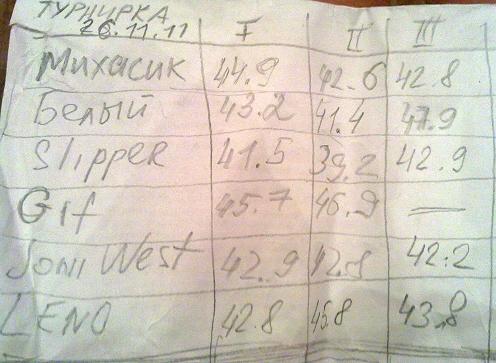 ТУРНИРКА
26.11.11 I II III
Михасик 44.9 42.6 42.8
Белый 43.2 41.4 47.9
Slipper 41.5 39.2 42.9
Gif 45.7 46.9 —
Joni West 42.9 42.8 42.2
LENO 42.8 45.8 43.8